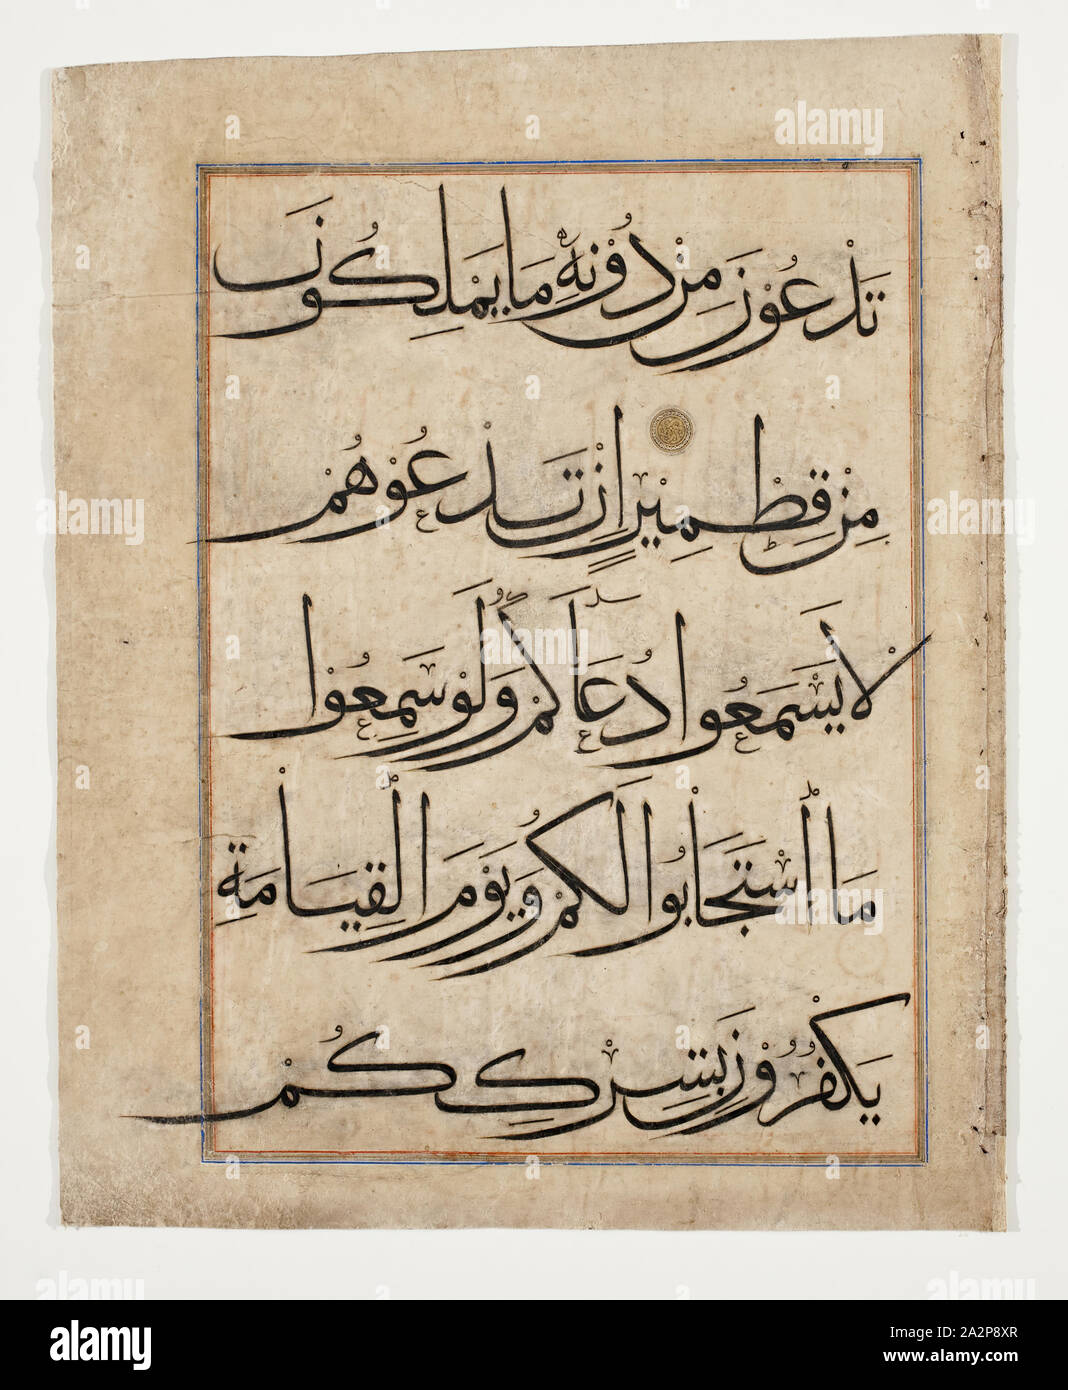 تَدْعُوْنَ مِنْ دُوْنِهٖ مَا يَمْلِكُونَ
مِنْ قِطْمِيْرٍ اِنْ تَدْعُوْهُمْ
لَا يَسْمَعُوا دُعَآءَكُمْ وَلَوْ سَمِعُوْا
مَا اسْتَجَابُوا لَكُمْ وَيَوْمَ الْقِيَامَةِ
يَكْفُرُوْنَ بِشِرْكِكُمْ
alamy
Image ID: 2A2P8XR
www.alamy.com